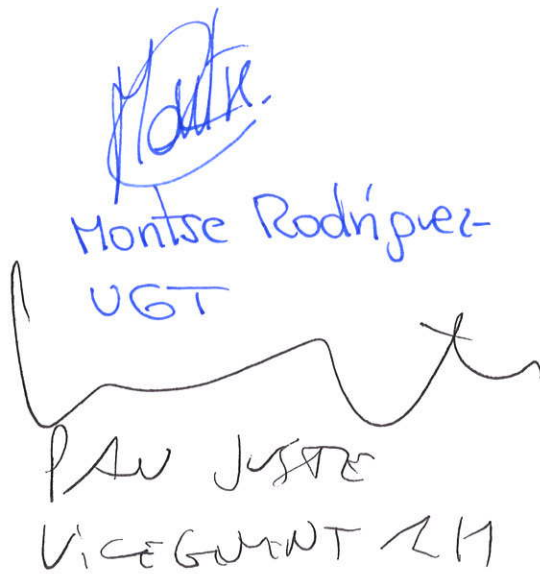 Montse.
Montse Rodríguez
UGT
PAU JUSTE
VICEGERENT RH